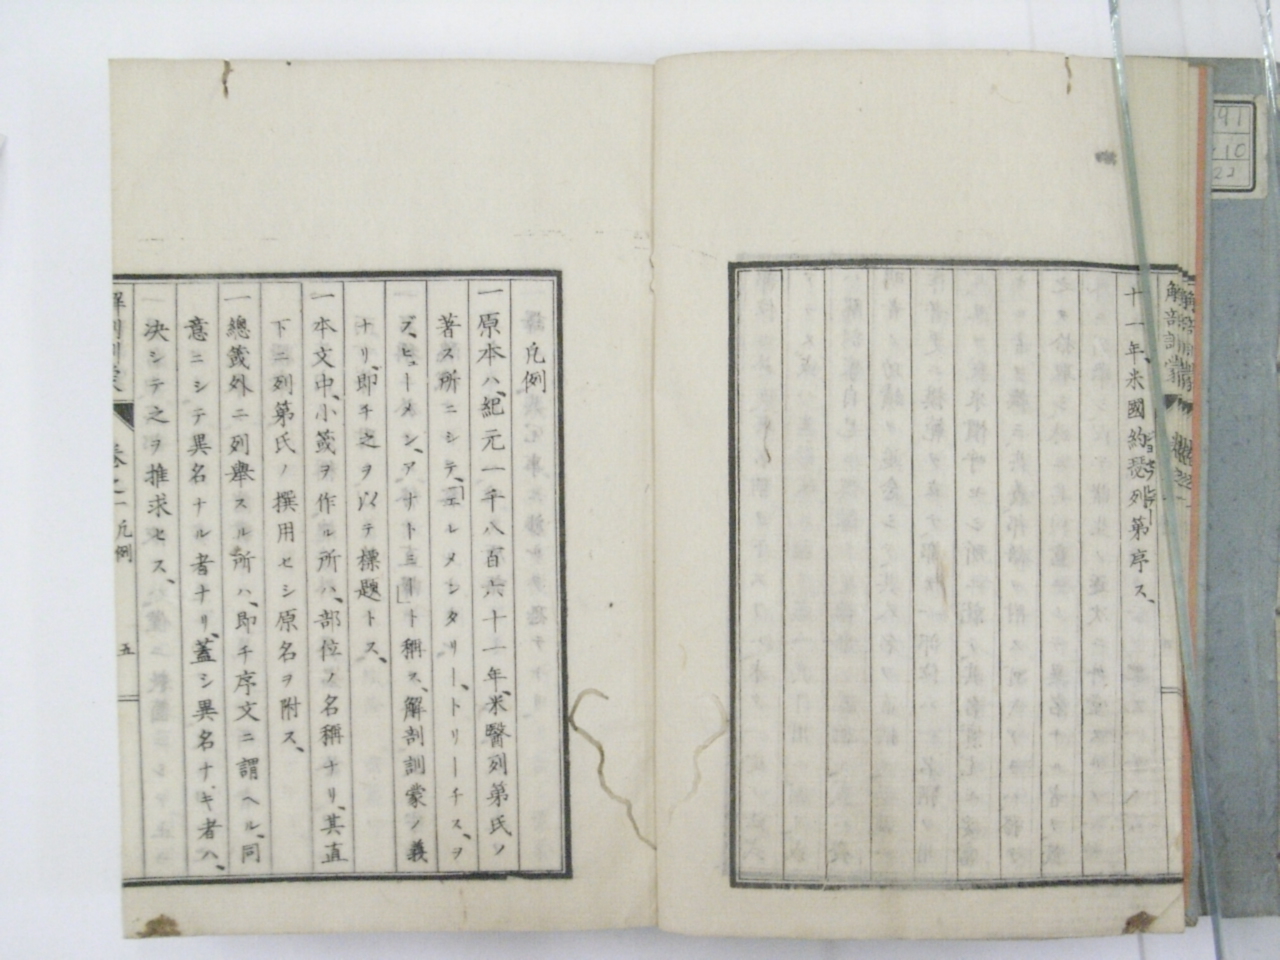 十一年、米國約瑟列第序ス、
凡例
一原本ハ、紀元一千八百六十一年、米醫列第氏ノ
著ス所ニシテ、「エレメンタリー、トリーチス、ヲ
ブ、ヒューメン、アナトミー」ト稱ス、解剖訓蒙ノ義
ナリ、即チ之ヲ以テ標題トス、
一本文中、小籤ヲ作ル所ハ、部位ノ名稱ナリ、其直
下ニ列第氏ノ撰用セシ原名ヲ附ス、
一總籤外ニ列擧スル所ハ、即チ序文ニ謂ヘル、同
意ニシテ異名ナル者ナリ、蓋シ異名ナキ者ハ、
決シテ之ヲ推求セス、
卷之一 凡例
五